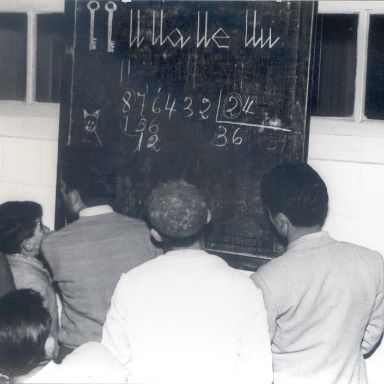 ll lla lle llu
876432 24
156 36
12